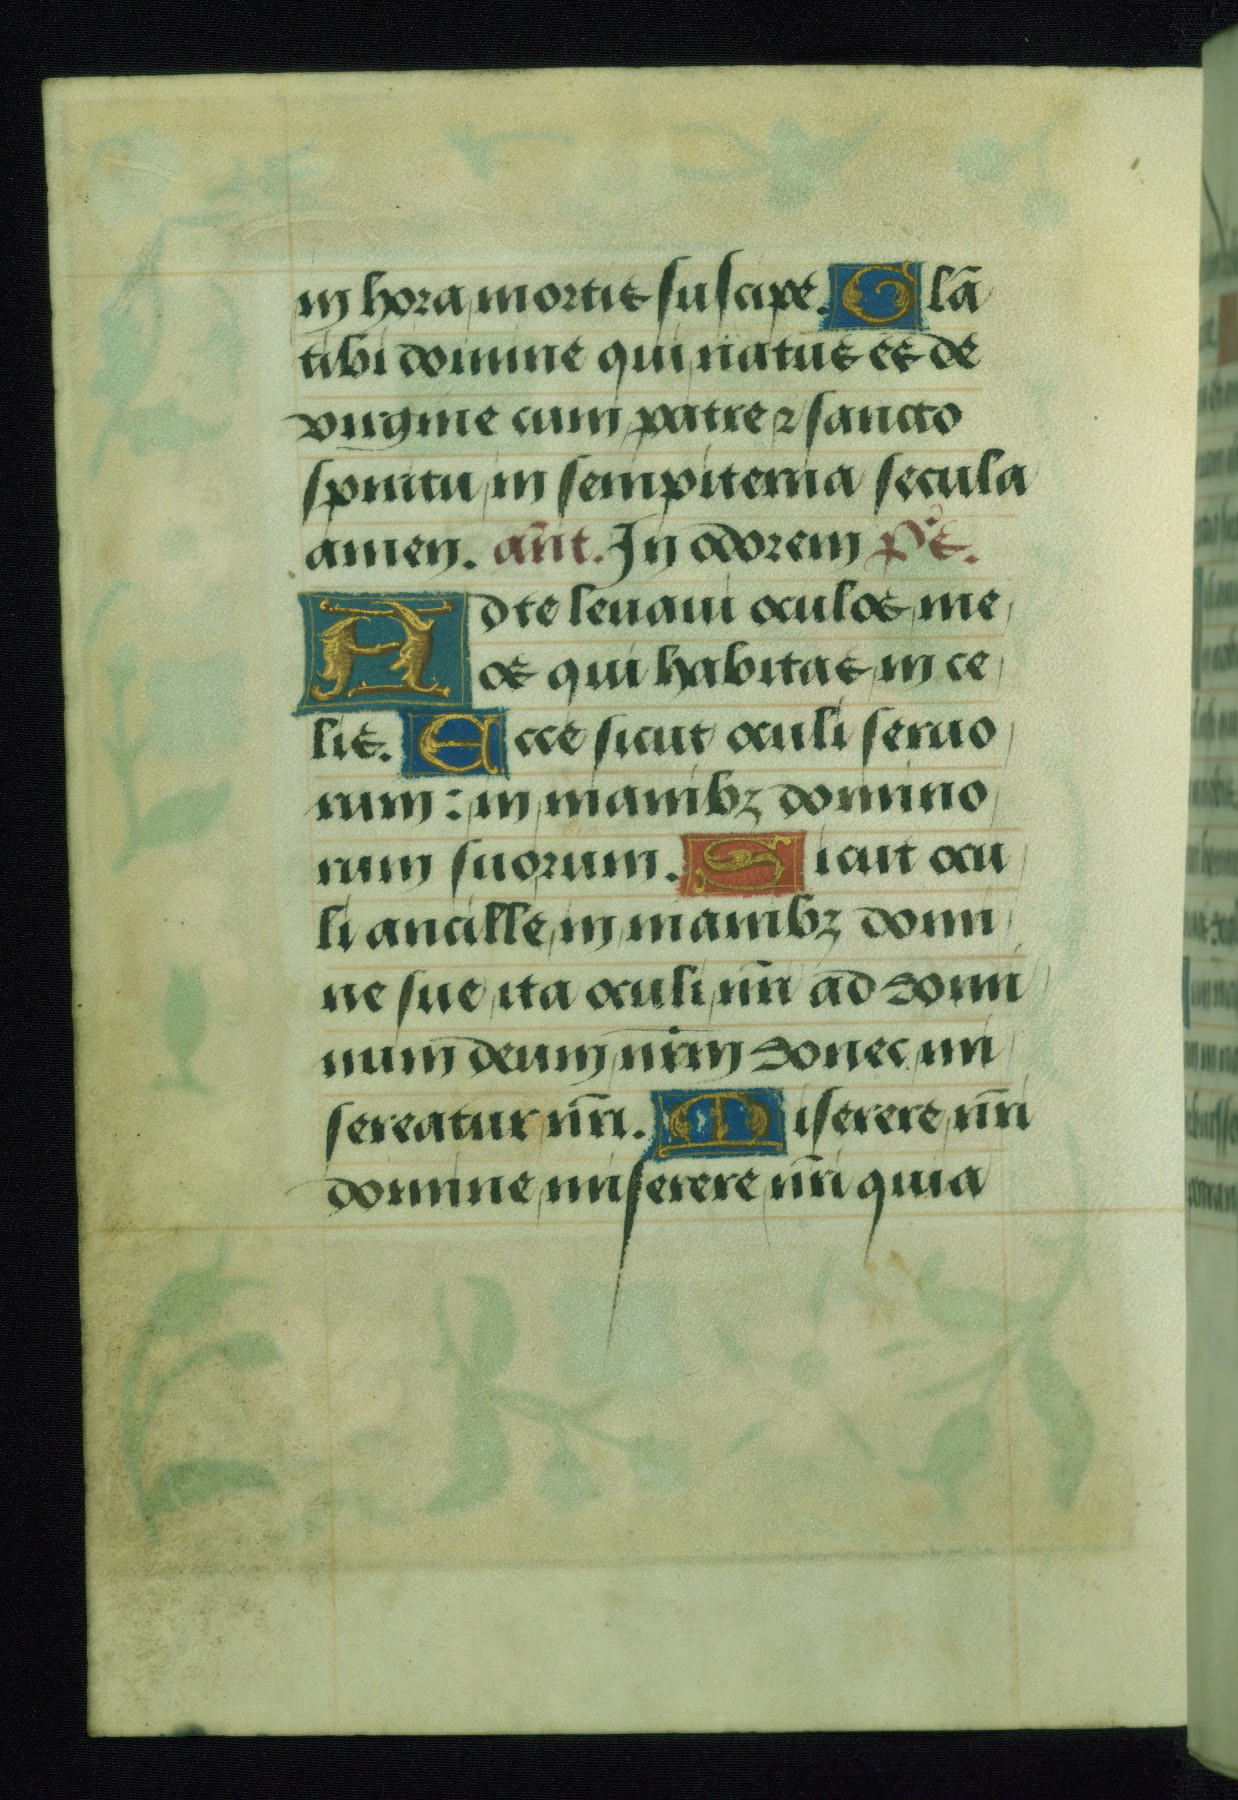 in hora mortis suscipe. Glã
tibi domine qui natus es de
virgine cum patre ⁊ sancto
spiritu in sempiterna secula
amen. añt. In odorem p̃s.
Ad te leuaui oculos me
os qui habitas in ce
lis. Ecce sicut oculi seruo
rum: in manibꝫ domino
rum suorum. Sicut ocu
li ancille in manibꝫ domi
ne sue ita oculi nr̃i ad domi
num deum nr̃m donec mi
sereatur nr̃i. Miserere nr̃i
domine miserere nr̃i quia